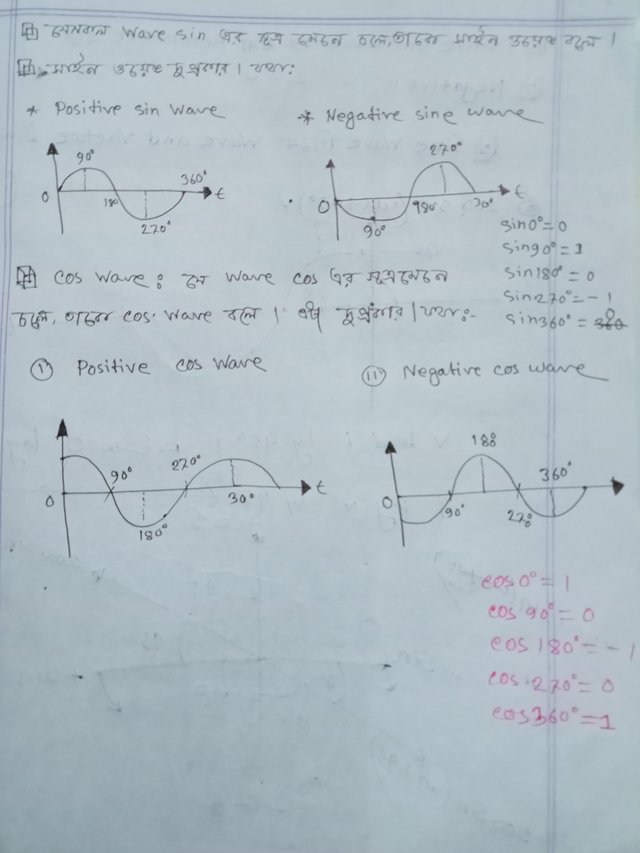 যেসকল Wave sin এর সূত্র মেনে চলে, তাকে সাইন ওয়েভ বলে।
সাইন ওয়েভ দুপ্রকার। যথা:
* Positive sin wave
* Negative sine wave
90°
360°
0
180
270°
t
270°
0
90°
980°
30°
t
sin0°=0
sin90°=1
sin180°=0
sin270°=-1
sin360°=0
cos wave: যে wave cos এর সূত্রমেনে
চলে, তাকে cos. Wave বলে। এটা দুপ্রকার। যথা:-
(i) Positive cos wave
(ii) Negative cos wave
90°
270°
0
180°
30°
t
188
360°
0
90°
278
cos0°=1
cos 90°=0
cos 180°=-1
cos.270°=0
cos360°=1